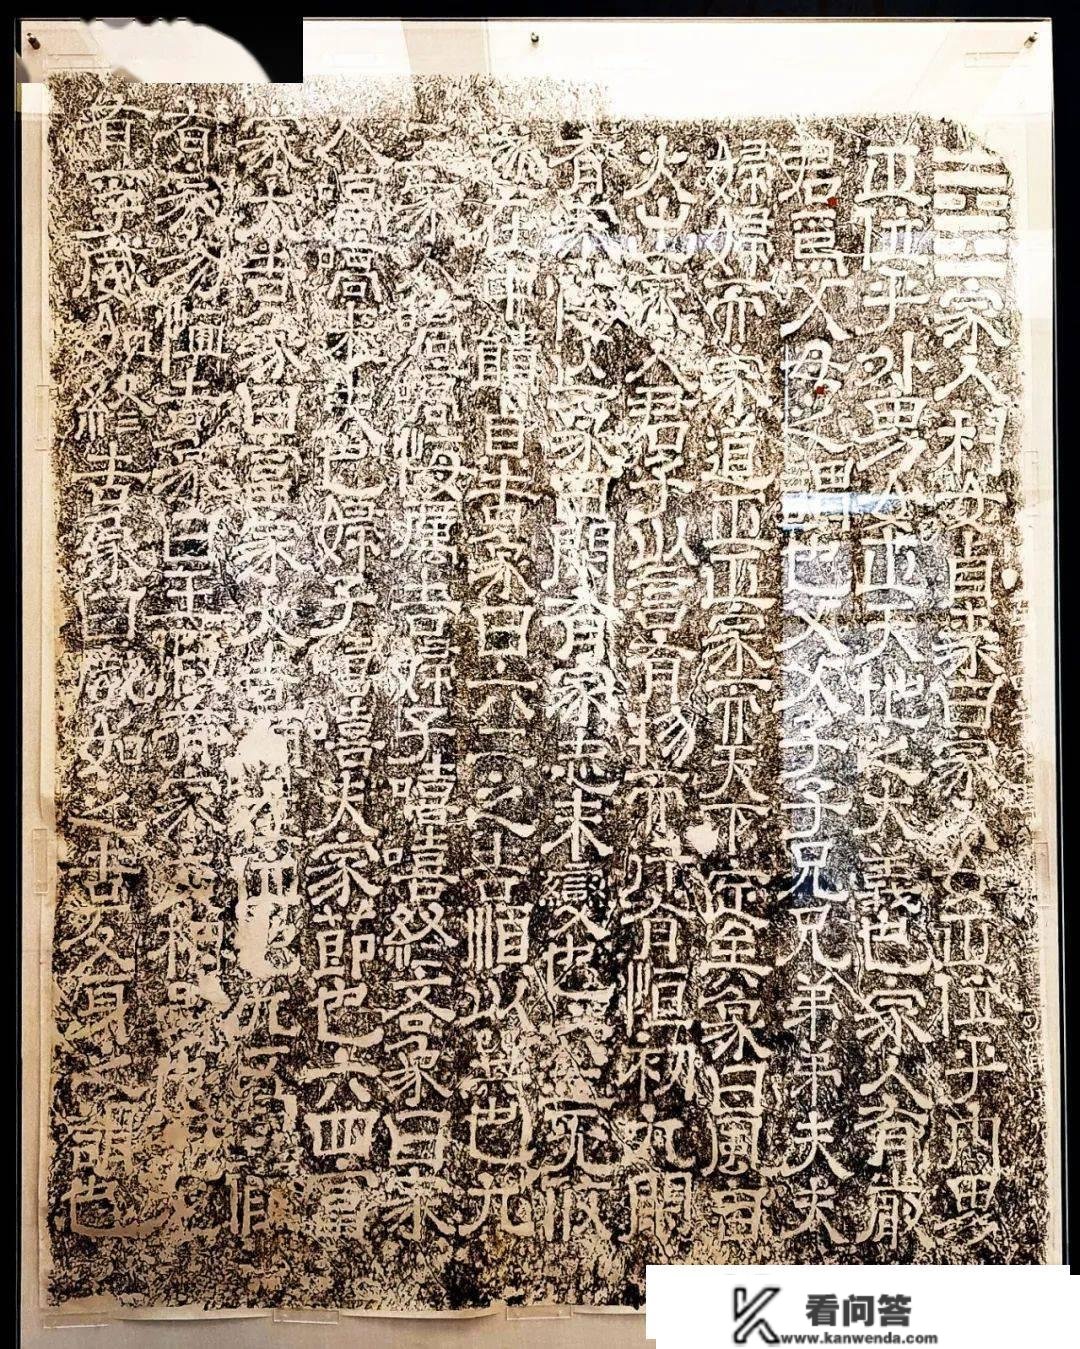 ䷤家人利女貞彖曰家人女正位乎內男
正位乎外男女正天地之大義也家人有嚴
君焉父母之謂也父父子子兄兄弟弟夫夫
婦婦而家道正正家而天下定矣象曰風自
火出家人君子以言有物而行有恒初九閑
有家悔亡象曰閑有家志未變也六二无攸
遂在中饋貞吉象曰六二之吉順以巽也九
三家人嗃嗃悔厲吉婦子嘻嘻終吝象曰家
人嗃嗃未失也婦子嘻嘻失家節也六四富
家大吉象曰富家大吉順在位也九五王假
有家勿恤吉象曰王假有家交相愛
有孚威如終吉象曰威如之吉反身之謂也
看问答
www.kanwenda.com